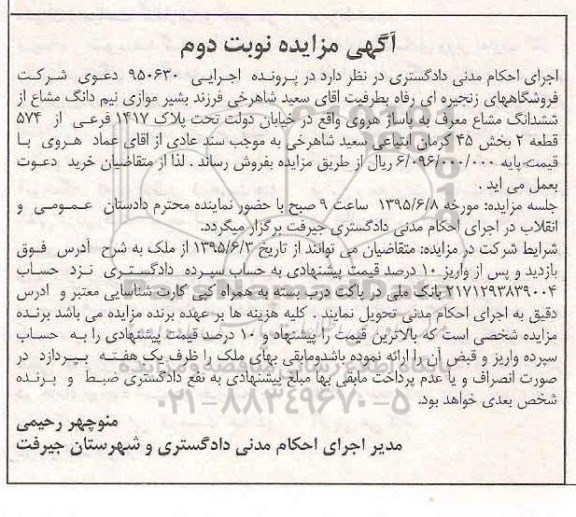 آگهی مزایده نوبت دوم
اجرای احکام مدنی دادگستری در نظر دارد در پرونده اجرایی ۹۵۰۶۳۰ دعوی شرکت
فروشگاههای زنجیره ای رفاه بطرفیت اقای سعید شاهرخی فرزند بشیر موازی نیم دانگ مشاع از
ششدانگ مشاع معرف به پاساژ هروی واقع در خیابان دولت تحت پلاک ۱۴۱۷ فرعی از ۵۷۴
قطعه ۲ بخش ۴۵ کرمان ابتیاعی سعید شاهرخی به موجب سند عادی از اقای عماد هروی با
قیمت پایه ۶/۰۹۶/۰۰۰/۰۰۰ ریال از طریق مزایده بفروش رساند . لذا از متقاضیان خرید دعوت
بعمل می اید .
جلسه مزایده: مورخه ۱۳۹۵/۶/۸ ساعت ۹ صبح با حضور نماینده محترم دادستان عمومی و
انقلاب در اجرای احکام مدنی دادگستری جیرفت برگزار میگردد.
شرایط شرکت در مزایده: متقاضیان می توانند از تاریخ ۱۳۹۵/۶/۳ از ملک به شرح آدرس فوق
بازدید و پس از واریز ۱۰ درصد قیمت پیشنهادی به حساب سپرده دادگستری نزد حساب
۲۱۷۱۲۹۳۸۳۹۰۰۴ بانک ملی در پاکت درب بسته به همراه کپی کارت شناسایی معتبر و ادرس
دقیق به اجرای احکام مدنی تحویل نمایند . کلیه هزینه ها بر عهده برنده مزایده می باشد برنده
مزایده شخصی است که بالاترین قیمت را پیشنهاد و ۱۰ درصد قیمت پیشنهادی را به حساب
سپرده واریز و قبض آن را ارائه نموده باشدومابقی بهای ملک را ظرف یک هفته بپردازد در
صورت انصراف و یا عدم پرداخت مابقی بها مبلغ پیشنهادی به نفع دادگستری ضبط و برنده
شخص بعدی خواهد بود.
منوچهر رحیمی
مدیر اجرای احکام مدنی دادگستری و شهرستان جیرفت
ParsNamadData
۰۲۱-۸۸۳۴۹۶۷۰-۵